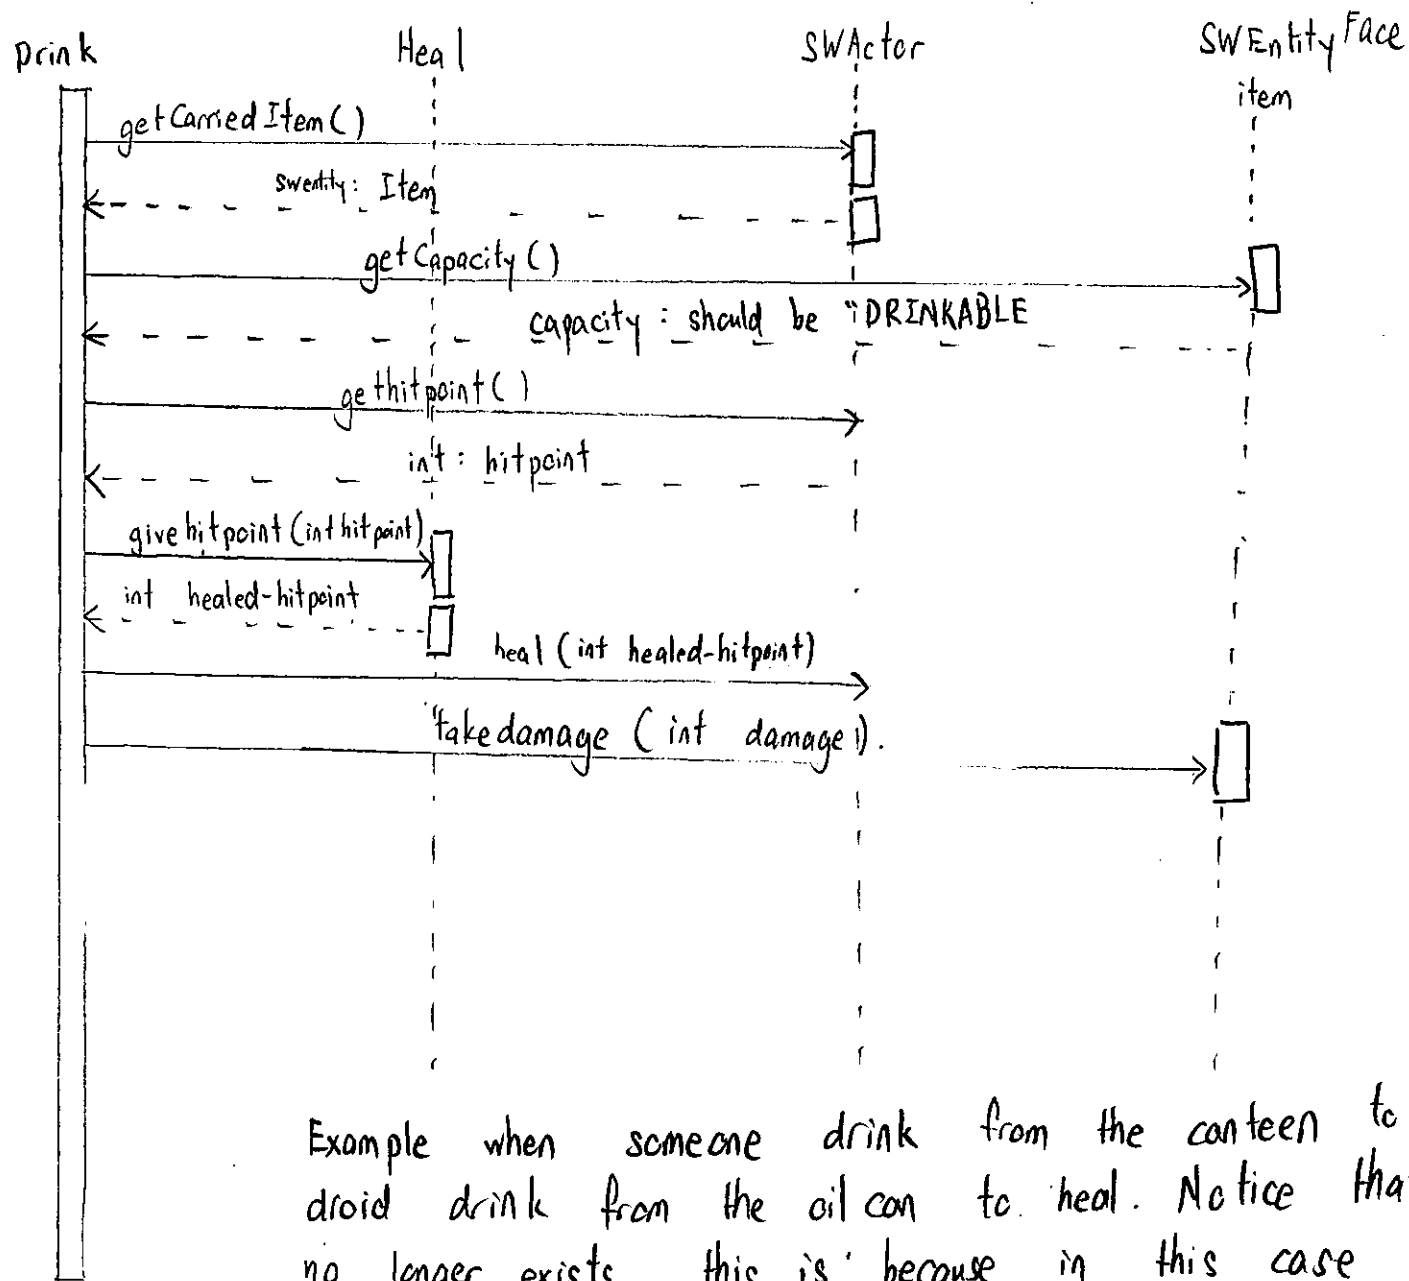 Drink Heal SWActor SWEntityFace
item
getCarriedItem()
swentity: Item
getCapacity()
capacity: should be "DRINKABLE
gethitpoint()
int: hitpoint
givehitpoint(int hitpoint)
int healed-hitpoint
heal (int healed-hitpoint)
takedamage (int damage).
Example when someone drink from the canteen to
droid drink from the oil can to heal. Notice tha
no longer exists this is because in this case